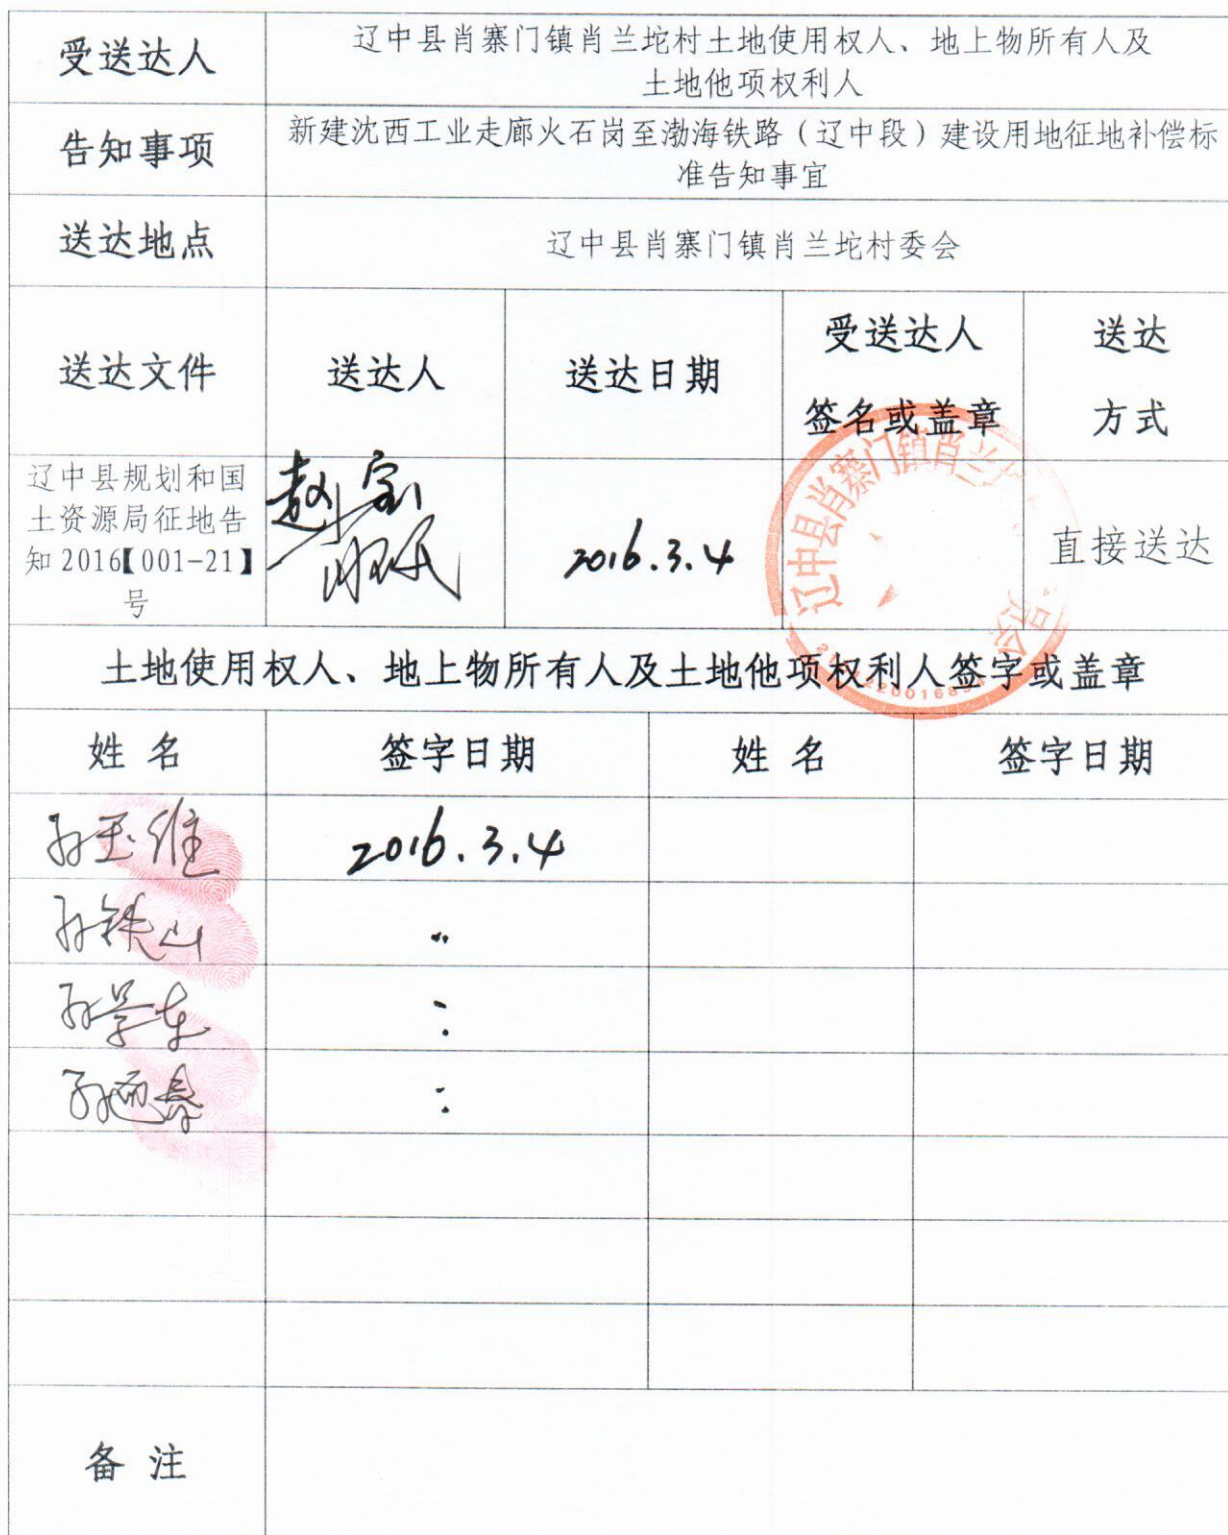 受送达人
辽中县肖寨门镇肖兰坨村土地使用权人、地上物所有人及
土地他项权利人
告知事项
新建沈西工业走廊火石岗至渤海铁路（辽中段）建设用地征地补偿标
准告知事宜
送达地点
辽中县肖寨门镇肖兰坨村委会
送达文件
送达人
送达日期
受送达人
签名或盖章
送达
方式
辽中县规划和国
土资源局征地告
知 2016【001-21】
号
赵宝
2016.3.4
辽中县肖寨门镇肖兰
直接送达
土地使用权人、地上物所有人及土地他项权利人签字或盖章
姓 名
签字日期
姓 名
签字日期
孙玉维
2016.3.4
孙铁山
〃
孙学东
〃
〃
备 注